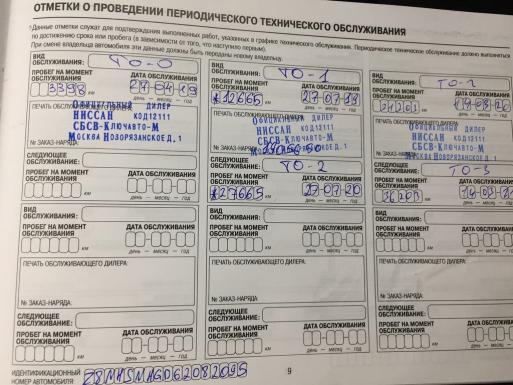 ОТМЕТКИ О ПРОВЕДЕНИИ ПЕРИОДИЧЕСКОГО ТЕХНИЧЕСКОГО ОБСЛУЖИВАНИЯ
Данные отметки служат для подтверждения выполненных работ, указанных в графике технического обслуживания. Периодическое техническое обслуживание должно выполняться
по достижению срока или пробега (в зависимости от того, что наступило первым).
При смене владельца автомобиля эти данные должны быть переданы новому владельцу.
ВИД
ОБСЛУЖИВАНИЯ: ТО-0
ПРОБЕГ НА МОМЕНТ ДАТА ОБСЛУЖИВАНИЯ
ОБСЛУЖИВАНИЯ
3398 км 27-04-19
день — месяц — год
ПЕЧАТЬ ОБСЛУЖИВАЮЩЕГО
ОФИЦИАЛЬНЫЙ ДИЛЕР
НИССАН КОД 12111
СБСВ-КЛЮЧАВТО-М
МОСКВА НОВОРЯЗАНСКОЕ Д, 1
№ ЗАКАЗ-НАРЯДА:
СЛЕДУЮЩЕЕ
ОБСЛУЖИВАНИЕ:
ПРОБЕГ НА МОМЕНТ ДАТА ОБСЛУЖИВАНИЯ
ОБСЛУЖИВАНИЯ
км день — месяц — год
ВИД
ОБСЛУЖИВАНИЯ:
ПРОБЕГ НА МОМЕНТ ДАТА ОБСЛУЖИВАНИЯ
ОБСЛУЖИВАНИЯ
км день — месяц — год
ПЕЧАТЬ ОБСЛУЖИВАЮЩЕГО ДИЛЕРА:
№ ЗАКАЗ-НАРЯДА:
СЛЕДУЮЩЕЕ
ОБСЛУЖИВАНИЕ:
ПРОБЕГ НА МОМЕНТ ДАТА ОБСЛУЖИВАНИЯ
ОБСЛУЖИВАНИЯ
км день — месяц — год
ВИД
ОБСЛУЖИВАНИЯ: ТО-1
ПРОБЕГ НА МОМЕНТ ДАТА ОБСЛУЖИВАНИЯ
ОБСЛУЖИВАНИЯ
12665 км 27-07-19
день — месяц — год
ПЕЧАТЬ ОБСЛУЖИВАЮЩЕГО ДИЛЕРА:
ОФИЦИАЛЬНЫЙ ДИЛЕР
НИССАН КОД 12111
СБСВ-КЛЮЧАВТО-М
НОВОРЯЗАНСКОЕ Д, 1
№ ЗАКАЗ-НАРЯДА:
СЛЕДУЮЩЕЕ
ОБСЛУЖИВАНИЕ: ТО-2
ПРОБЕГ НА МОМЕНТ ДАТА ОБСЛУЖИВАНИЯ
ОБСЛУЖИВАНИЯ
27665 км 27-07-20
день — месяц — год
ВИД
ОБСЛУЖИВАНИЯ:
ПРОБЕГ НА МОМЕНТ ДАТА ОБСЛУЖИВАНИЯ
ОБСЛУЖИВАНИЯ
км день — месяц — год
ПЕЧАТЬ ОБСЛУЖИВАЮЩЕГО ДИЛЕРА:
№ ЗАКАЗ-НАРЯДА:
СЛЕДУЮЩЕЕ
ОБСЛУЖИВАНИЕ:
ПРОБЕГ НА МОМЕНТ ДАТА ОБСЛУЖИВАНИЯ
ОБСЛУЖИВАНИЯ
км день — месяц — год
ВИД
ОБСЛУЖИВАНИЯ:
ПРОБЕГ НА МОМЕНТ ДАТА ОБСЛУЖИВАНИЯ
ОБСЛУЖИВАНИЯ
км
день — месяц — год
ПЕЧАТЬ ОБСЛУЖИВАЮЩЕГО ДИЛЕРА:
ОФИЦИАЛЬНЫЙ ДИЛЕР
НИССАН КОД 12111
СБСВ-КЛЮЧАВТО-М
МОСКВА НОВОРЯЗАНСКОЕ Д, 1
СЛЕДУЮЩЕЕ
ОБСЛУЖИВАНИЕ: ТО-3
ПРОБЕГ НА МОМЕНТ ДАТА ОБСЛУЖИВ
ОБСЛУЖИВАНИЯ
км
день — месяц
ВИД
ОБСЛУЖИВАНИЯ:
ПРОБЕГ НА МОМЕНТ ДАТА ОБСЛУЖИ
ОБСЛУЖИВАНИЯ
км день — месяц
ПЕЧАТЬ ОБСЛУЖИВАЮЩЕГО ДИЛЕРА:
№ ЗАКАЗ-НАРЯДА:
СЛЕДУЮЩЕЕ
ОБСЛУЖИВАНИЕ:
ПРОБЕГ НА МОМЕНТ ДАТА ОБСЛУЖ
ОБСЛУЖИВАНИЯ
км день — месяц
ИДЕНТИФИКАЦИОННЫЙ
НОМЕР АВТОМОБИЛЯ:
9